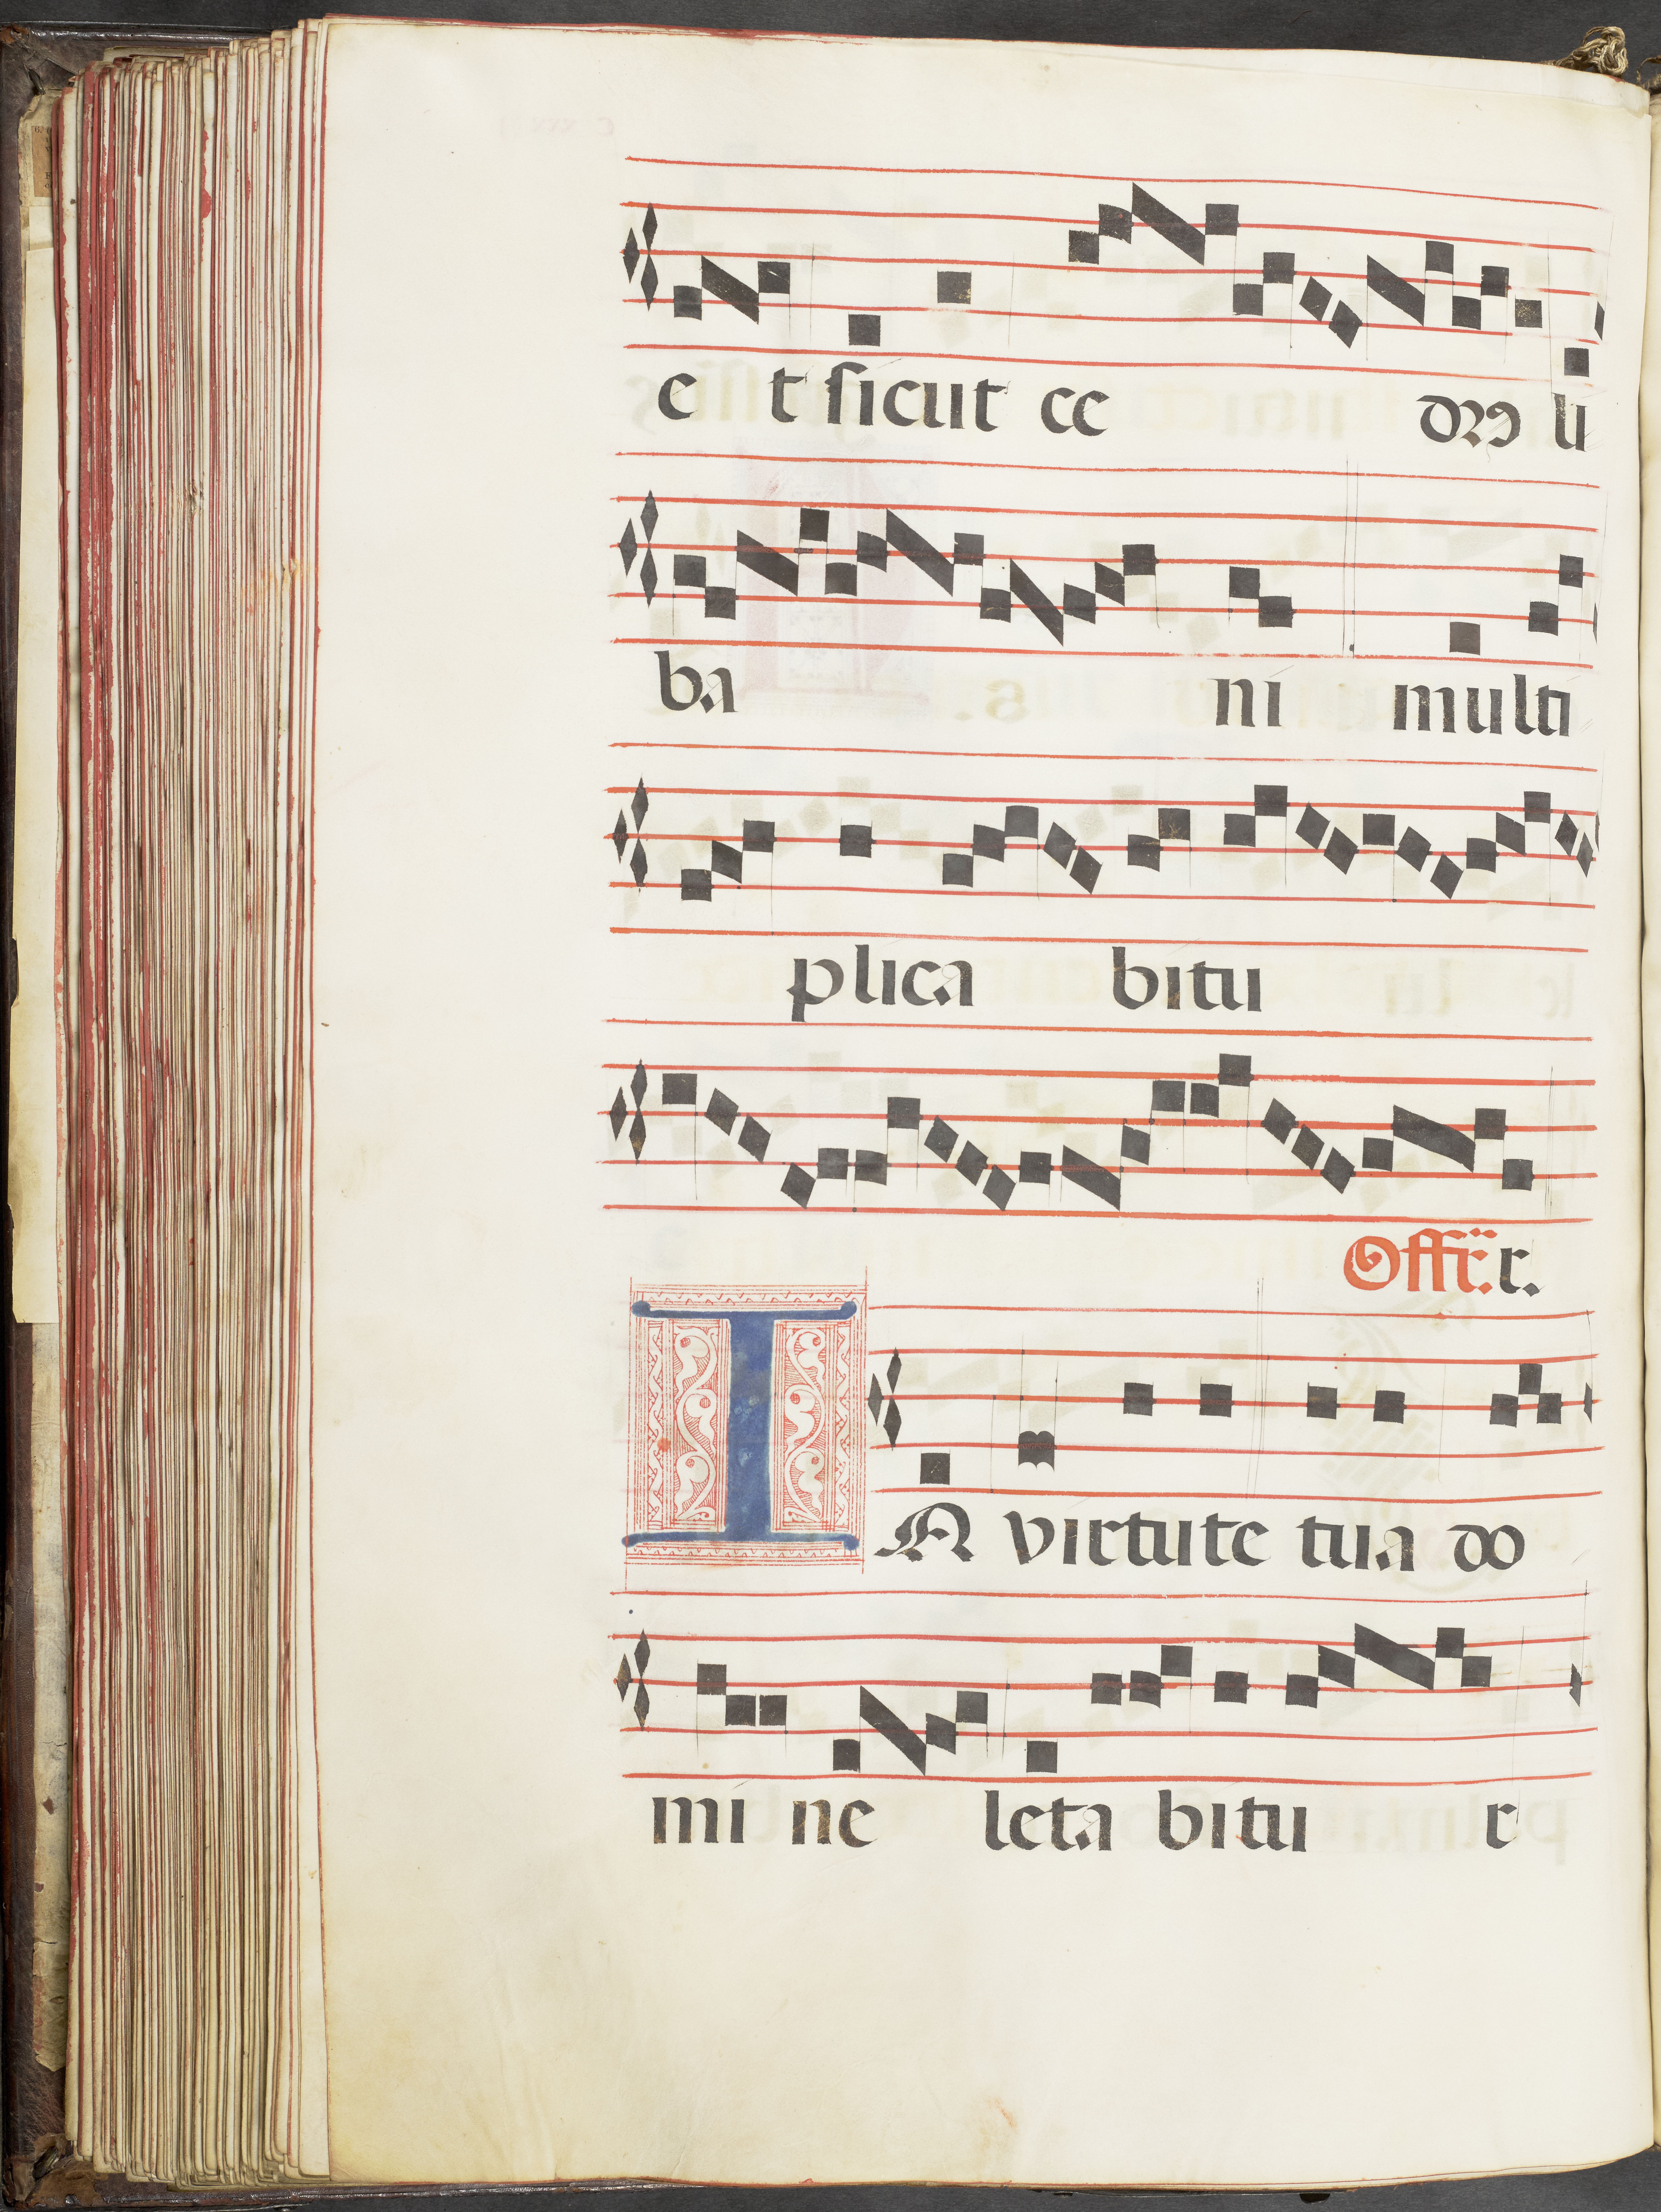 e t sicut ce drꝰ li
ba ni multi
plica bitu
Offr̃. r.
IN virtute tua do
mi ne leta bitu r